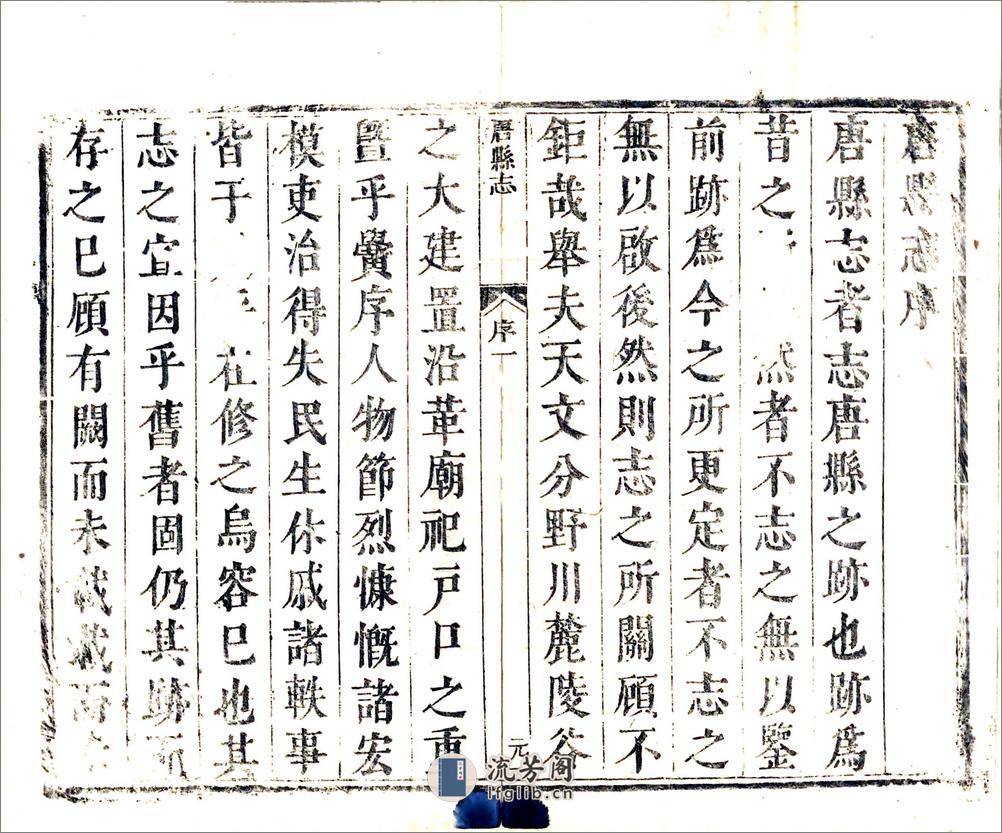 唐縣志序
唐縣志者志唐縣之跡也跡爲
昔之 然者不志之無以鑒
前跡爲今之所更定者不志之
無以啟後然則志之所關顧不
鉅哉舉夫天文分野川麓陵谷
唐縣志 序一
之大建置沿革廟祀戸口之重
曁乎黌序人物節烈慷慨諸宏
模吏治得失民生休戚諸軼事
皆于 在修之烏容巳也其
志之宜因乎舊者固仍其跡而
存之巳顧有闕而未載載而
元
流芳阁
lfglib.cn